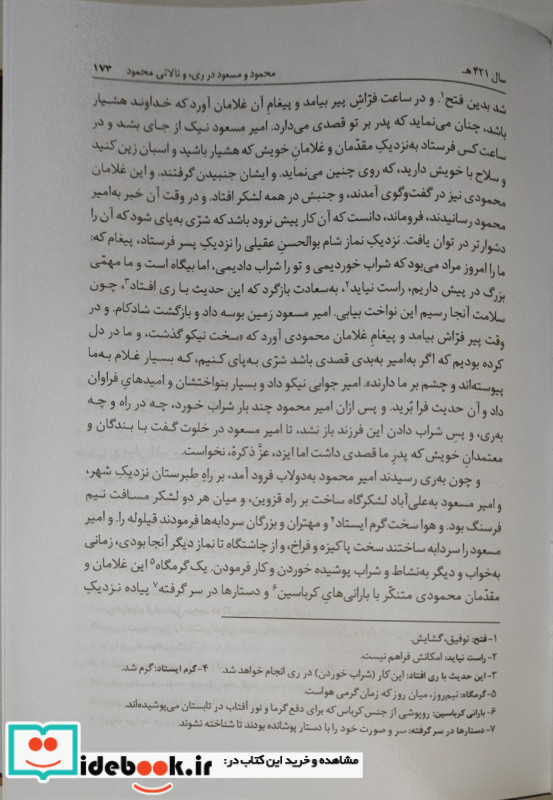 سال ۴۲۱ هـ
محمود و مسعود در ری، و نالانی محمود ۱۷۳
شد بدین فتح۱. و در ساعت فرّاشِ پیر بیامد و پیغامِ آن غلامان آورد که خداوند هشیار
باشد، چنان می‌نماید که پدر بر تو قصدی می‌دارد. امیر مسعود نیک از جای بشد و در
ساعت کس فرستاد به‌نزدیکِ مقدّمان و غلامانِ خویش که هشیار باشید و اسبان زین کنید
و سلاح با خویش دارید، که روی چنین می‌نماید. و ایشان جنبیدن گرفتند. و این غلامان
محمودی نیز در گفت‌وگوی آمدند، و جنبش در همه لشکر افتاد. و در وقت آن خبر به‌امیر
محمود رسانیدند، فروماند، دانست که آن کار پیش نرود باشد که شرّی به‌پای شود که آن را
دشوارتر در توان یافت. نزدیکِ نماز شام بوالحسنِ عقیلی را نزدیکِ پسر فرستاد، پیغام که:
ما را امروز مراد می‌بود که شراب خوردیمی و تو را شراب دادیمی، اما بیگاه است و ما مهمّی
بزرگ در پیش داریم، راست نیاید۲، به‌سعادت بازگرد که این حدیث با ری افتاد۳، چون
سلامت آنجا رسیم این نواخت بیابی. امیر مسعود زمین بوسه داد و بازگشت شادکام. و در
وقت پیر فرّاش بیامد و پیغامِ غلامان محمودی آورد که «سخت نیکو گذشت، و ما در دل
کرده بودیم که اگر به‌امیر به‌بدی قصدی باشد شرّی به‌پای کنیم، که بسیار غلام به‌ما
پیوسته‌اند و چشم بر ما دارند». امیر جوابی نیکو داد و بسیار بنواختشان و امیدهایِ فراوان
داد و آن حدیث فرا بُرید. و پس ازان امیر محمود چند بار شراب خورد، چه در راه و چه
به‌ری، و پسِ شراب دادن این فرزند باز نشد، تا امیر مسعود در خلوت گفت با بندگان و
معتمدانِ خویش که پدرِ ما قصدی داشت اما ایزد، عزَّ ذکرهُ، نخواست.
و چون به‌ری رسیدند امیر محمود به‌دولاب فرود آمد، بر راهِ طبرستان نزدیکِ شهر،
و امیر مسعود به‌علی‌آباد لشکرگاه ساخت بر راه قزوین، و میان هر دو لشکر مسافت نیم
فرسنگ بود. و هوا سخت گرم ایستاد۴ و مهتران و بزرگان سردابه‌ها فرمودند قیلوله را. و امیر
مسعود را سردابه ساختند سخت پاکیزه و فراخ، و از چاشتگاه تا نماز دیگر آنجا بودی، زمانی
به‌خواب و دیگر به‌نشاط و شراب پوشیده خوردن و کار فرمودن. یک گرمگاه۵ این غلامان و
مقدّمان محمودی متنکّر با بارانی‌هایِ کرباسین۶ و دستارها در سر گرفته۷ پیاده نزدیکِ
۱- فتح: توفیق، گشایش.
۲- راست نیاید: امکانش فراهم نیست.
۳- این حدیث با ری افتاد: این کار (شراب خوردن) در ری انجام خواهد شد. ۴- گرم ایستاد: گرم شد.
۵- گرمگاه: نیم‌روز، میان روز که زمان گرمی هواست.
۶- بارانی کرباسین: روپوشی از جنس کرباس که برای دفع گرما و نور آفتاب در تابستان می‌پوشیده‌اند.
۷- دستارها در سر گرفته: سر و صورت خود را با دستار پوشانده بودند تا شناخته نشوند.
مشاهده و خرید این کتاب در:
idebook.ir